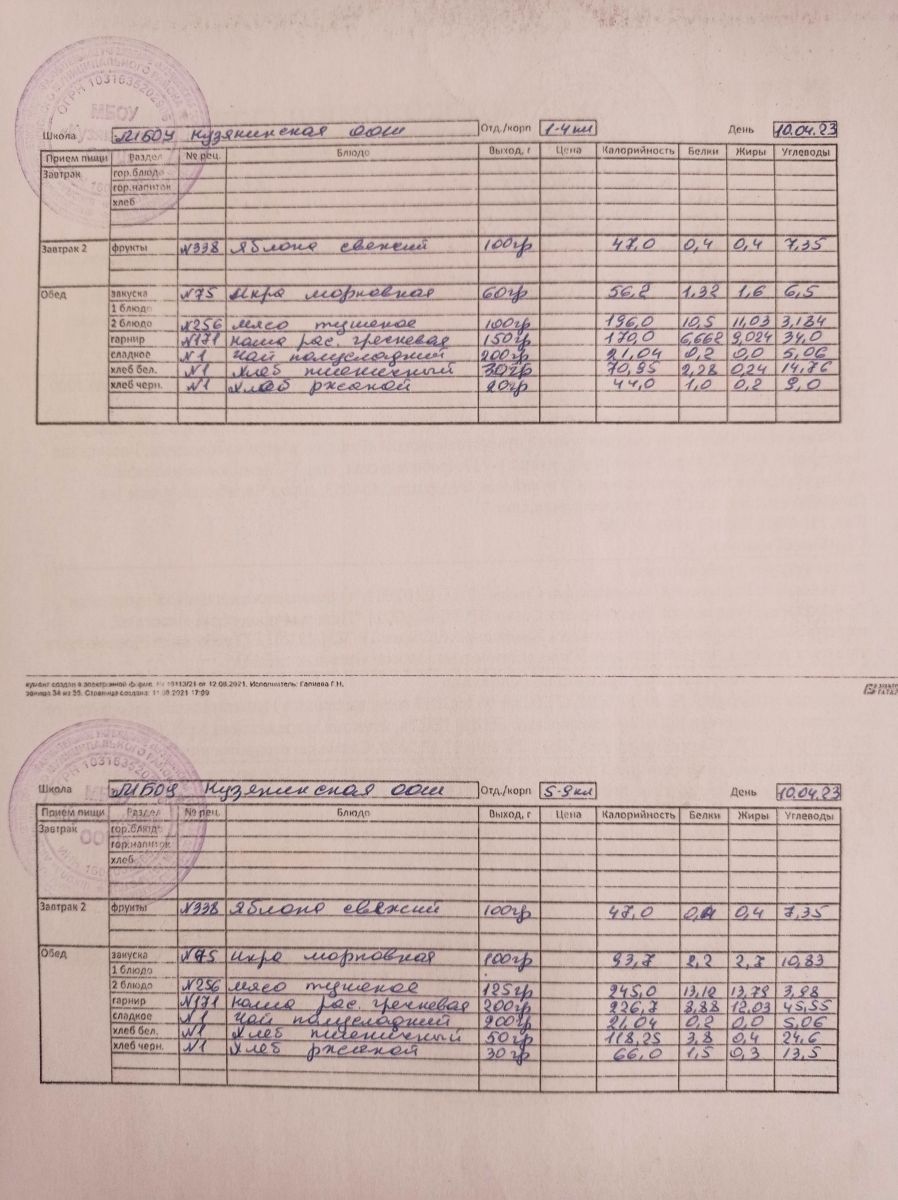 МБОУ
Школа МБОУ Кузякинская ООШ Отд./корп 1-4 кл День 10.04.23
Прием пищи Раздел № рец. Блюдо Выход, г Цена Калорийность Белки Жиры Углеводы
Завтрак гор.блюдо
гор.напиток
хлеб
Завтрак 2 фрукты №338 Яблоко свежий 100гр 47,0 0,4 0,4 7,35
Обед закуска №75 Икра морковная 60гр 56,2 1,32 1,6 6,5
1 блюдо
2 блюдо №256 мясо тушеное 100гр 196,0 10,5 11,03 3,184
гарнир №171 каша рас. гречневая 150гр 170,0 6,662 9,024 34,0
сладкое №1 Чай полусладкий 200гр 21,04 0,2 0,0 5,06
хлеб бел. №1 Хлеб пшеничный 30гр 70,95 2,28 0,24 14,76
хлеб черн. №1 Хлеб ржаной 20гр 44,0 1,0 0,2 9,0
кумент создан в электронной форме. № 12.08.2021. Исполнитель: Галиева Г.Н.
аница 34 из 35. Страница создана: 11.08.2021 17:09
Школа МБОУ Кузякинская ООШ Отд./корп 5-9 кл День 10.04.23
Прием пищи Раздел № рец. Блюдо Выход, г Цена Калорийность Белки Жиры Углеводы
Завтрак гор.блюдо
гор.напиток
хлеб
Завтрак 2 фрукты №338 Яблоко свежий 100гр 47,0 0,4 0,4 7,35
Обед закуска №75 Икра морковная 100гр 93,7 2,2 2,7 10,83
1 блюдо
2 блюдо №256 мясо тушеное 125гр 245,0 13,12 13,79 3,98
гарнир №171 каша рас. гречневая 200гр 226,7 8,88 12,03 45,35
сладкое №1 Чай полусладкий 200гр 21,04 0,2 0,0 5,06
хлеб бел. №1 Хлеб пшеничный 50гр 118,25 3,8 0,4 24,6
хлеб черн. №1 Хлеб ржаной 30гр 66,0 1,5 0,3 13,5